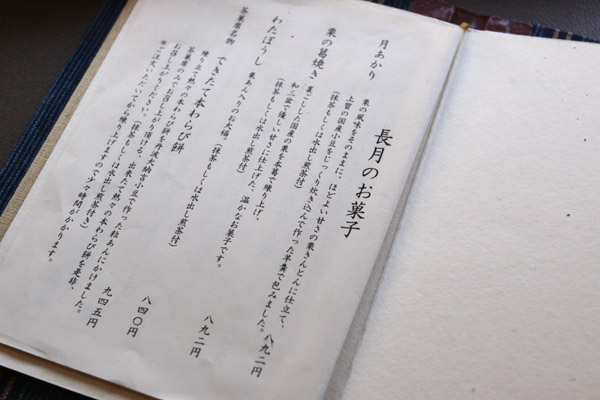 長月のお菓子
月あかり
栗の風味をそのままに、ほどよい甘さの栗きんとんに仕立て、
上質の国産小豆をじっくり炊き込んで作った羊羹で包みました。
(抹茶もしくは水出し煎茶付)
八九二円
栗の葛焼き 裏ごしした国産の栗を本葛で練り上げ、
和三盆で優しい甘さに仕上げた、温かなお菓子です。
(抹茶もしくは水出し煎茶付)
八九二円
わたぼうし 栗あん入りのお大福。(抹茶もしくは水出し煎茶付)
八四〇円
茶菓席名物 できたて本わらび餅
練り立て熱々の本わらび餅を丹波大納言小豆で作った粒あんにかけました。
茶菓席のみでお召し上がり頂ける、出来たて熱々の本わらび餅を是非、
お召し上がりください。(抹茶もしくは水出し煎茶付き)
九四五円
※ご注文いただいてから練り上げますので少々時間がかかります。